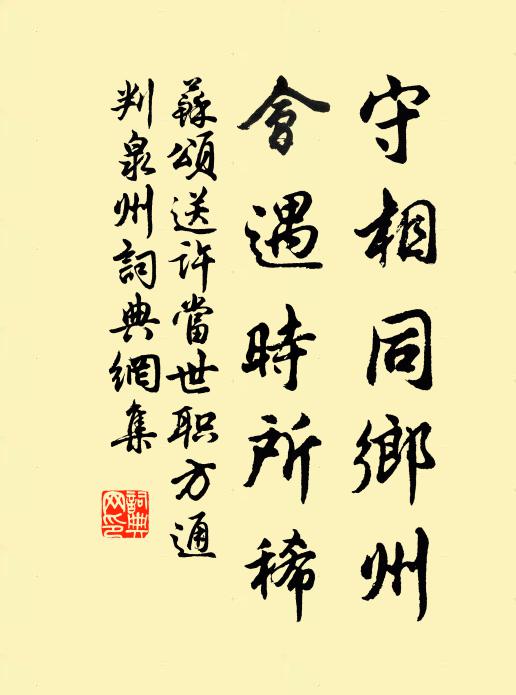 守相同鄉州
會遇時所稀
蘇頌送许當世职方通
判泉州詞典網集
詞典
网印